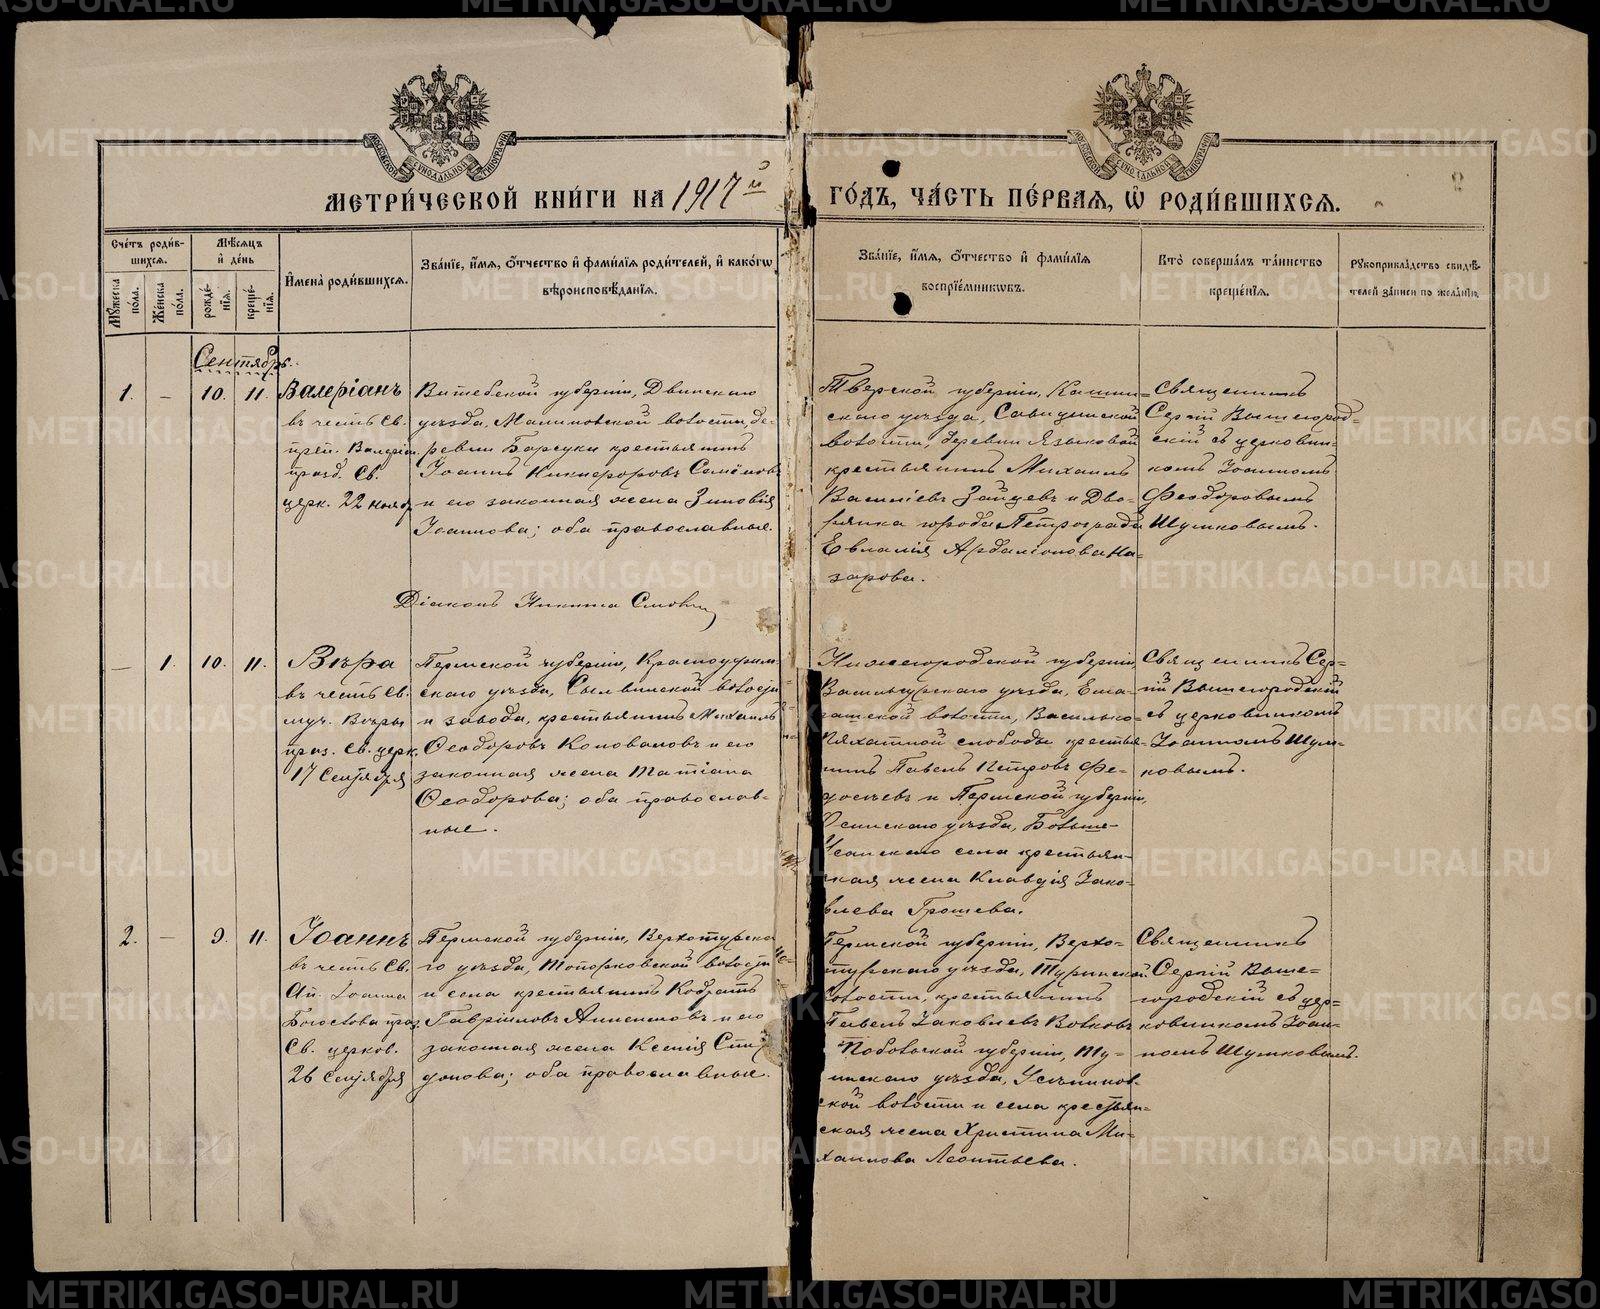 МЕТРИ́ЧЕСКОЙ КНИ́ГИ НА 1917й ГО́ДЪ, ЧА́СТЬ ПЕ́РВАЯ, Ѡ҆ РОДИ́ВШИХСЯ.
Сче́тъ роди́в-
шихся.
Мꙋ́жеска
по́ла.
Же́нска
по́ла.
Мѣ́сяцъ
и҆ де́нь
рожде́-
нїѧ.
креще́-
нїѧ.
И҆мена̀ роди́вшихся.
Зва́нїе, и҆́мѧ, ѻ҆́тчество и҆ фами́лїѧ роди́телей, и҆ како́гѡ
вѣроисповѣ́данїѧ.
Зва́нїе, и҆́мѧ, ѻ҆́тчество и҆ фами́лїѧ
воспрїе́мникѡвъ.
Кто̀ соверша́лъ та́инство
креще́нїѧ.
Рꙋкоприкла́дство свидѣ́-
телей за́писи по жела́нїю.
Сентябрь.
1.
–
10.
11.
Валеріанъ
въ честь Св.
преп. Валеріа.
празд. Св.
церк. 22 нояб.
Витебской губерніи, Двинскаго
уѣзда, Малиновской волости, де-
ревни Барсуки крестьянинъ
Іоаннъ Никифоровъ Семёновъ
и его законная жена Зиновія
Іоаннова; оба православные.
Діаконъ Никита
Тверской губерніи, Кашин=
скаго уѣзда, Савцынской
волости, деревни Языковой
крестьянинъ Михаилъ
Васильевъ Зайцевъ и Дво-
рянка города Петрограда
Евлалія Ардаліонова На-
зарова.
Священникъ
Сергій Вышегород-
скій съ церковни-
комъ Іоанномъ
Феодоровымъ
Шумковымъ.
–
1.
10.
11.
Вѣра
въ честь Св.
муч. Вѣры
праз. Св. церк.
17 Сентября
Пермской губерніи, Красноуфим-
скаго уѣзда, Сылвинской волости
и завода, крестьянинъ Михаилъ
Феодоровъ Коноваловъ и его
законная жена Татіана
Феодорова; оба православ-
ные.
Нижегородской губерніи,
Васильсурскаго уѣзда,
волости, Василько-
слободы крестья-
нинъ Павелъ Петровъ Фе-
досѣевъ и Пермской губерніи,
Осинскаго уѣзда, Больше-
Усинскаго села крестьян-
ская жена Клавдія Іако-
влева Грошева.
Священникъ Сер-
гій Вышегородскій
съ церковникомъ
Іоанномъ Шум-
ковымъ.
2.
–
9.
11.
Іоаннъ
въ честь Св.
Ап. Іоанна
Богослова праз.
Св. церков.
26 Сентября
Пермской губерніи, Верхотурска
го уѣзда, Топорковской волости
и села крестьянинъ Кодратъ
Гавріиловъ и его
законная жена Ксенія Спи-
донова; оба православные.
Пермской губерніи, Верхо-
турскаго уѣзда, Туринской
волости, крестьянинъ
Павелъ Іаковлевъ Волковъ
Тобольской губерніи, Ту-
ринскаго уѣзда,
ской волости и села крестьян=
ская жена Христина Ми-
хаилова Леонтьева.
Священникъ
Сергій Выше=
городскій съ цер=
ковникомъ Іоан-
номъ Шумковымъ.
METRIKI.GASO-URAL.RU